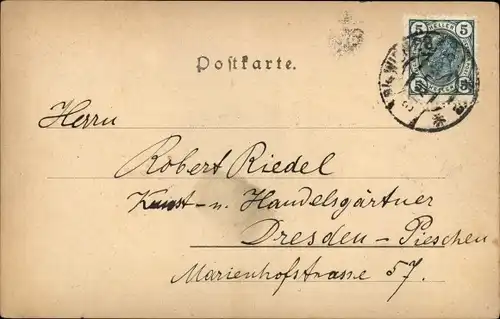 5 HELLER 5
5 5
Postkarte.
Herrn
Robert Riedel
Kunst- u. Handelsgärtner
Dresden-Pieschen
Marienhofstrasse 57.